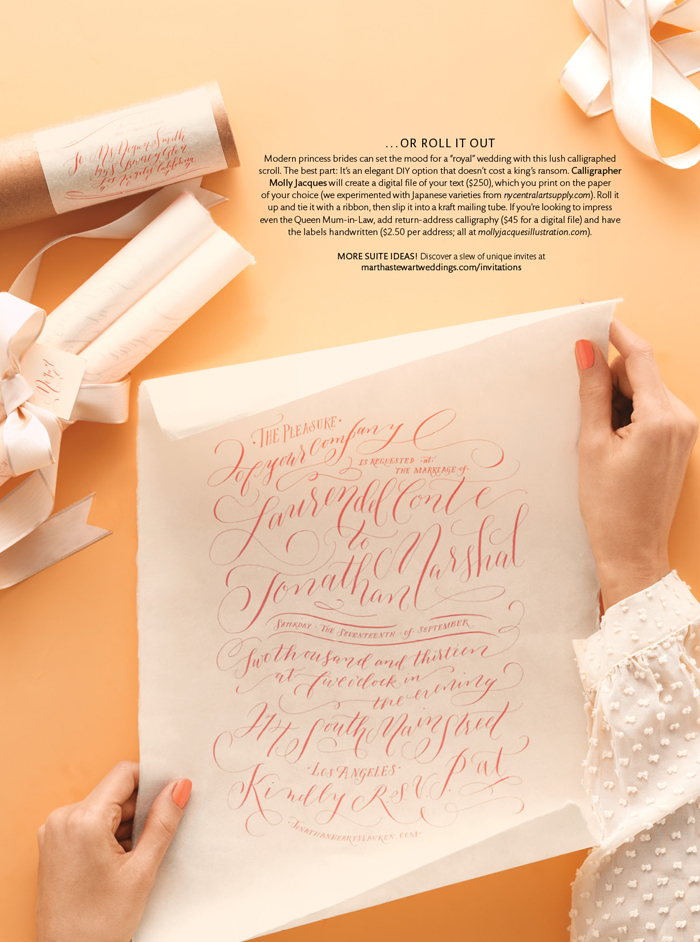 ...OR ROLL IT OUT
Modern princess brides can set the mood for a "royal" wedding with this lush calligraphed
scroll. The best part: It's an elegant DIY option that doesn't cost a king's ransom. Calligrapher
Molly Jacques will create a digital file of your text ($250), which you print on the paper
of your choice (we experimented with Japanese varieties from nycentralartsupply.com). Roll it
up and tie it with a ribbon, then slip it into a kraft mailing tube. If you're looking to impress
even the Queen Mum-in-Law, add return-address calligraphy ($45 for a digital file) and have
the labels handwritten ($2.50 per address; all at mollyjacquesillustration.com).
MORE SUITE IDEAS! Discover a slew of unique invites at
marthastewartweddings.com/invitations
Smith
Los Angeles California
·THE PLEASURE·
of your company
IS REQUESTED ·at·
THE MARRIAGE of·
Conte
to
Jonathan Marshal
SATURDAY · THE SEVENTEENTH · of · SEPTEMBER
two thousand and thirteen
at five o'clock in
the evening
South Main Street
·LOS ANGELES·
Kindly R.S.V.P at